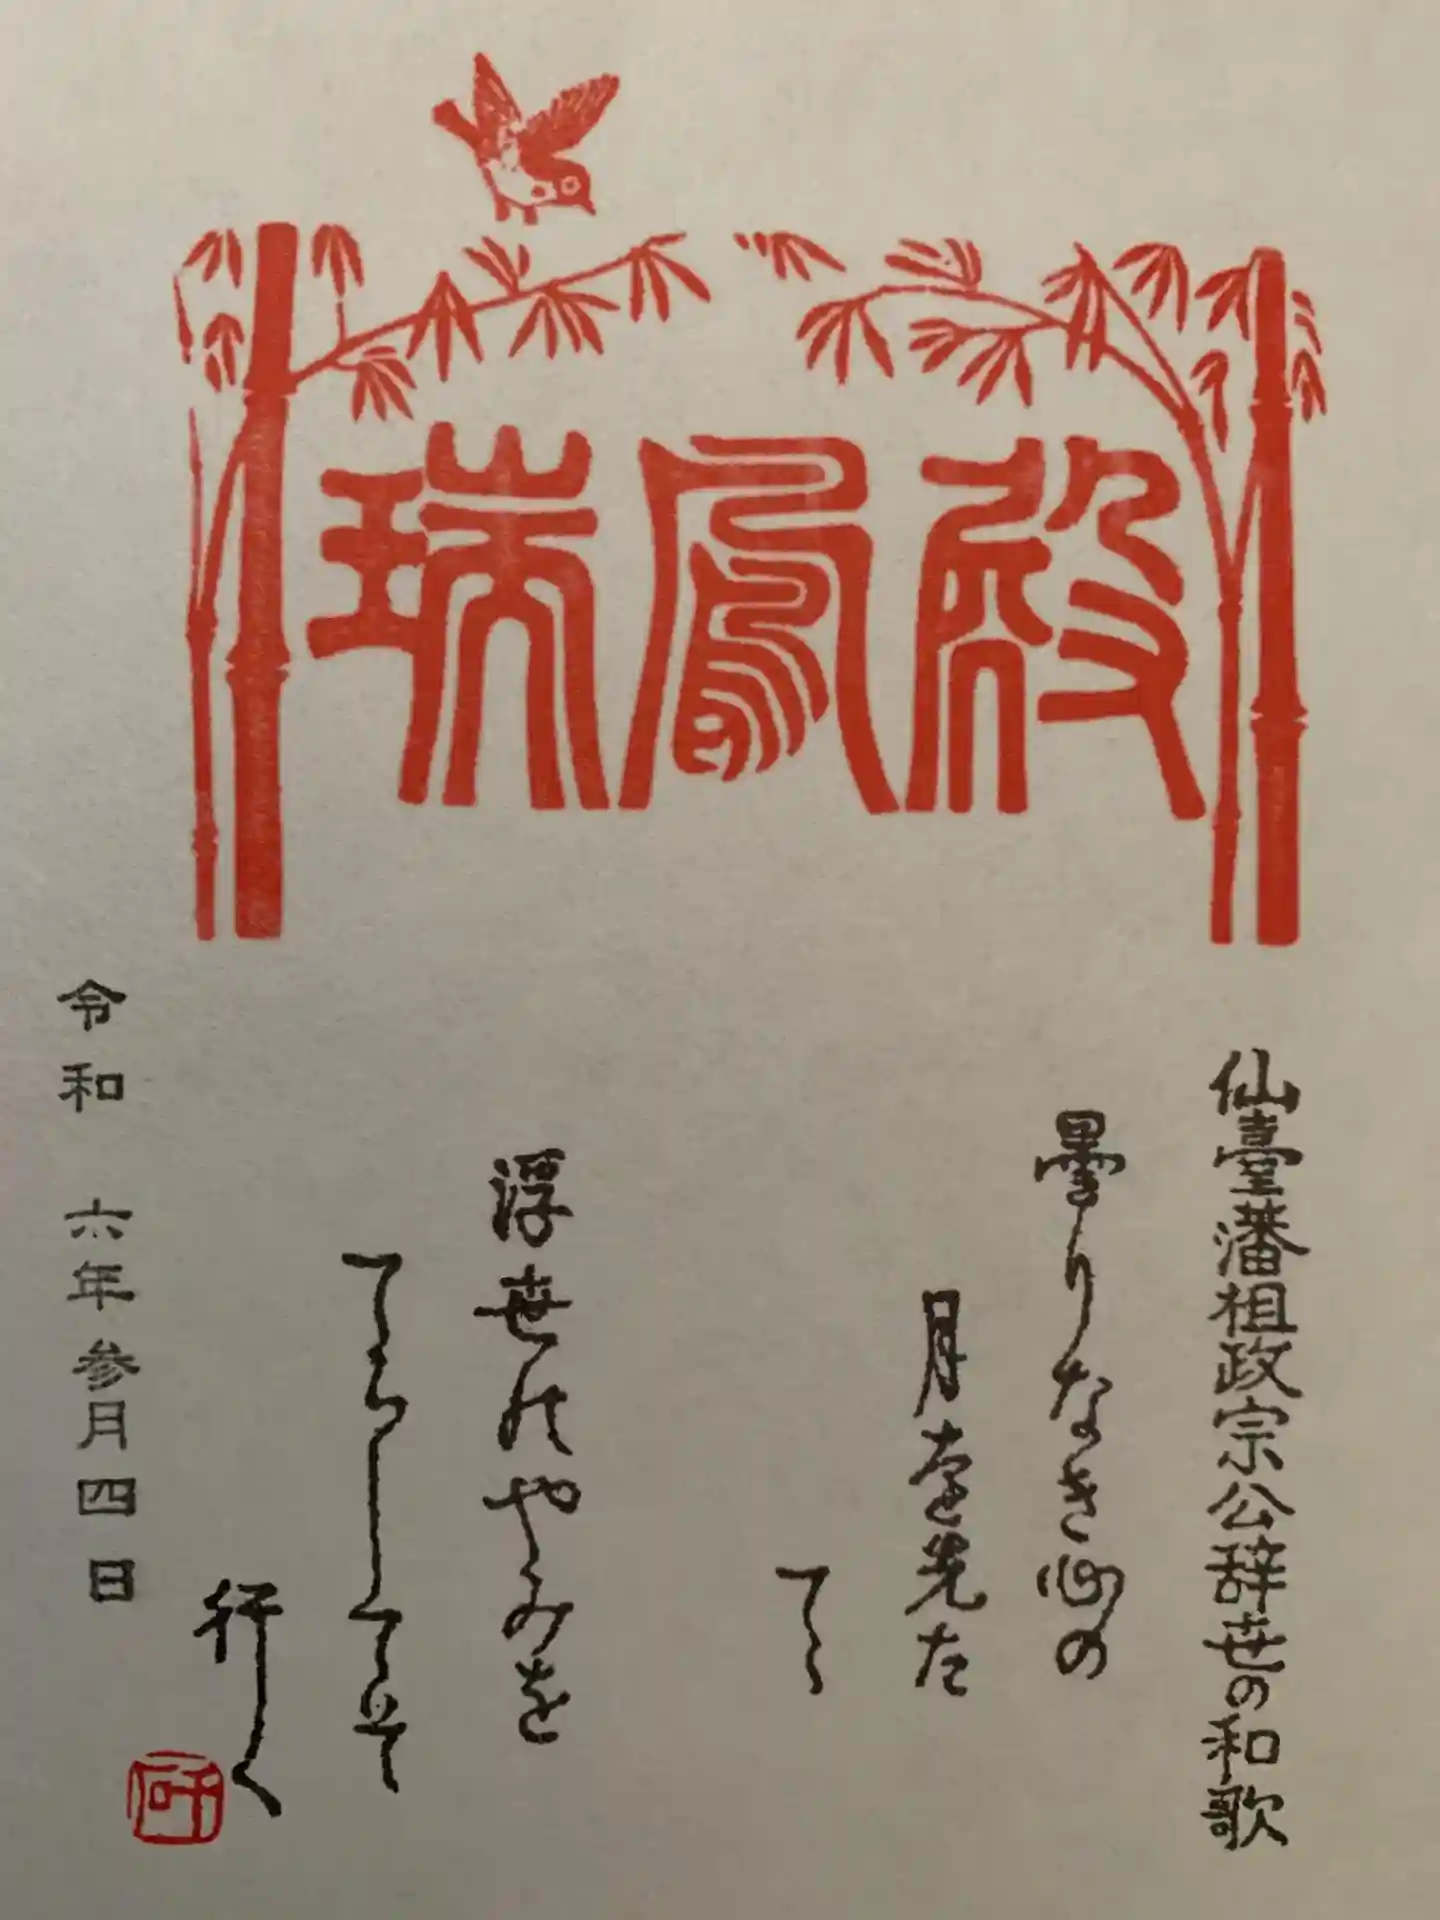 瑞鳳殿
仙臺藩祖政宗公辞世の和歌
曇りなき心の
月を先た
てゝ
浮世のやみを
てらしてそ
行く
令和 六年参月四日